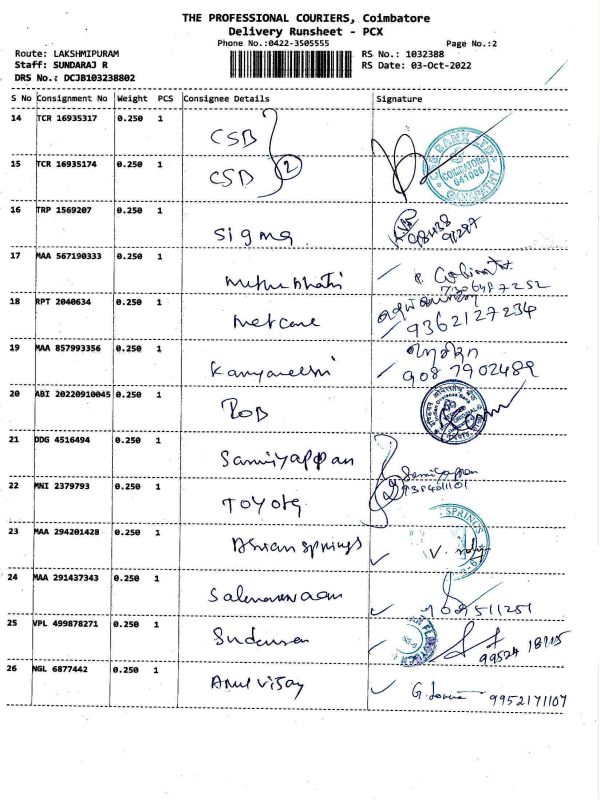 THE PROFESSIONAL COURIERS, Coimbatore
Delivery Runsheet - PCX
Phone No.:0422-3505555 Page No.:2
Route: LAKSHMIPURAM RS No.: 1032388
Staff: SUNDARAJ R RS Date: 03-Oct-2022
DRS No.: DCJB103238802
S No Consignment No Weight PCS Consignee Details Signature
14 TCR 16935317 0.250 1 CSB
15 TCR 16935174 0.250 1 CSB 2
COIMBATORE
641006
16 TRP 1569207 0.250 1 Sigma 98438
17 MAA 567190333 0.250 1
18 RPT 2040634 0.250 1 Metcare 9362127234
19 MAA 857993356 0.250 1 9087902489
20 ABI 20220910045 0.250 1
21 DDG 4516494 0.250 1 Samiyappan
22 MNI 2379793 0.250 1 TOYOTA Samiyappan
23 MAA 294201428 0.250 1 Asian springs V.
SPRINGS
24 MAA 291437343 0.250 1
25 VPL 499878271 0.250 1 99524 18105
26 NGL 6877442 0.250 1 Arul Vijay G. 9952171107